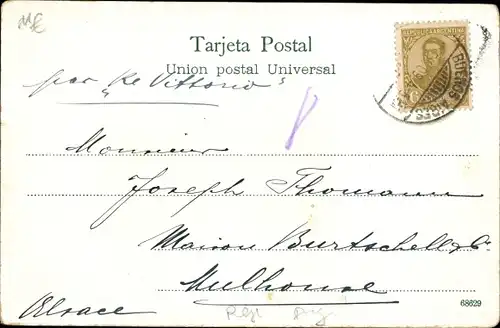 Tarjeta Postal
Union postal Universal
REPUBLICA ARGENTINA
BUENOS AIRES
par "Re Vittorio"
Monsieur
Joseph Thomann
Maison Burtschell & Co
Mulhouse
Alsace
68629